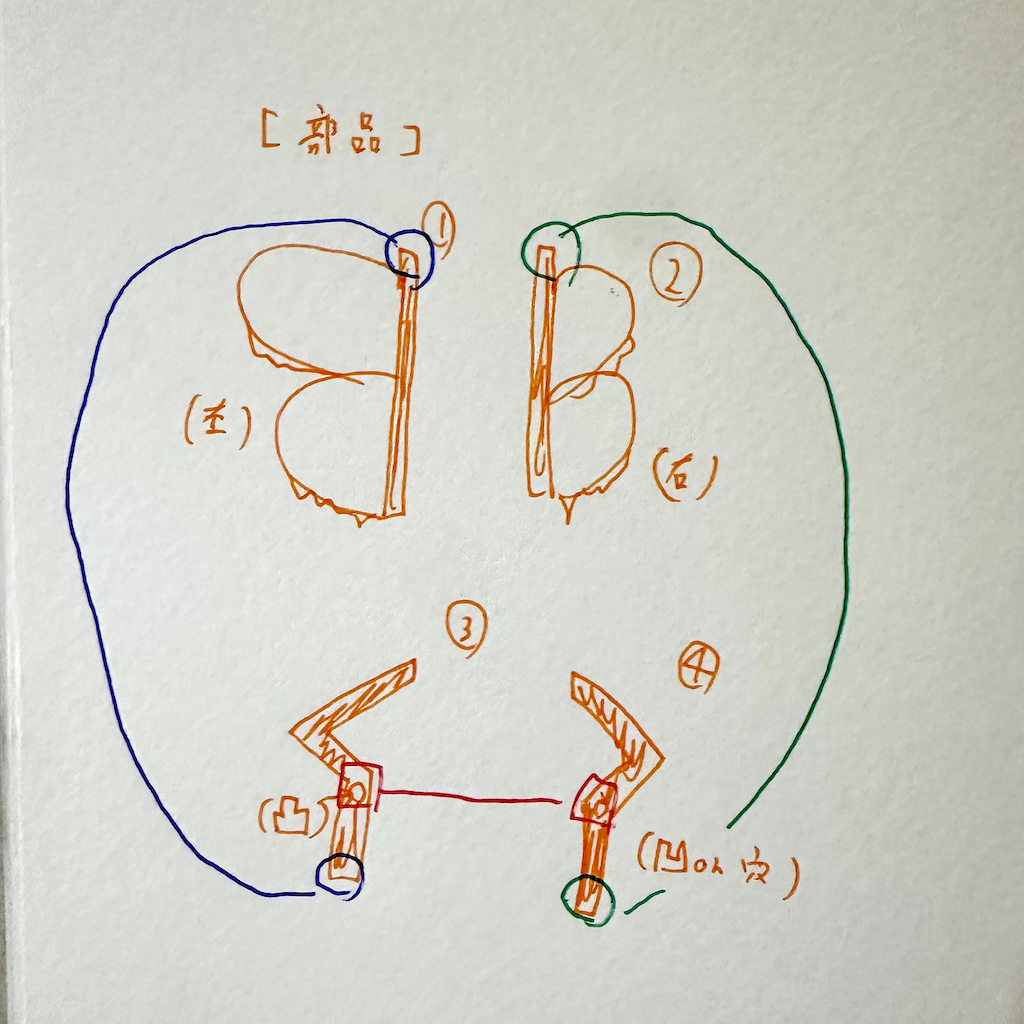 [部品]
①
②
(左)
(右)
③
④
(凸)
(凹or穴)